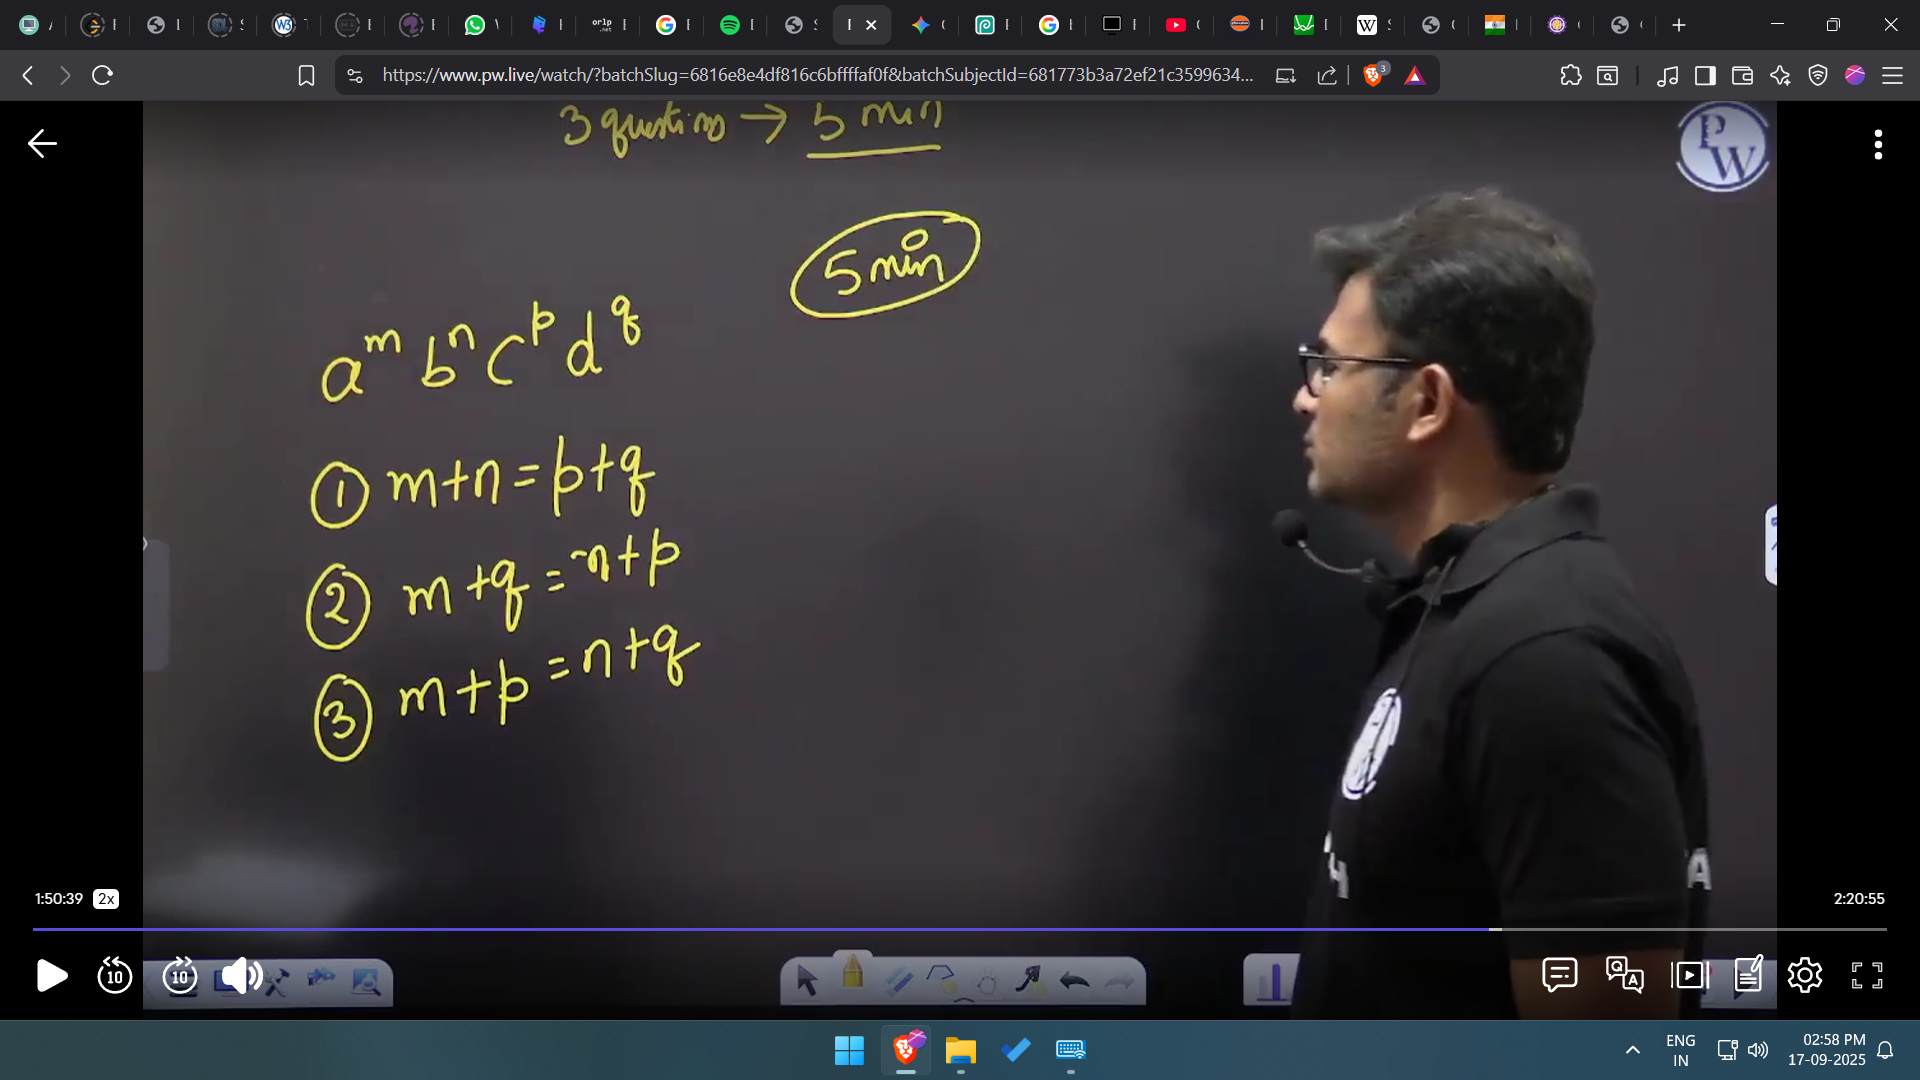 https://www.pw.live/watch/?batchSlug=6816e8e4df816c6bffffaf0f&batchSubjectId=681773b3a72ef21c3599634...
3 questions → 5 min
PW
5 min
a^m b^n c^p d^q
① m+n=p+q
② m+q=n+p
③ m+p=n+q
1:50:39 2x
2:20:55
10 10
ENG
IN
02:58 PM
17-09-2025